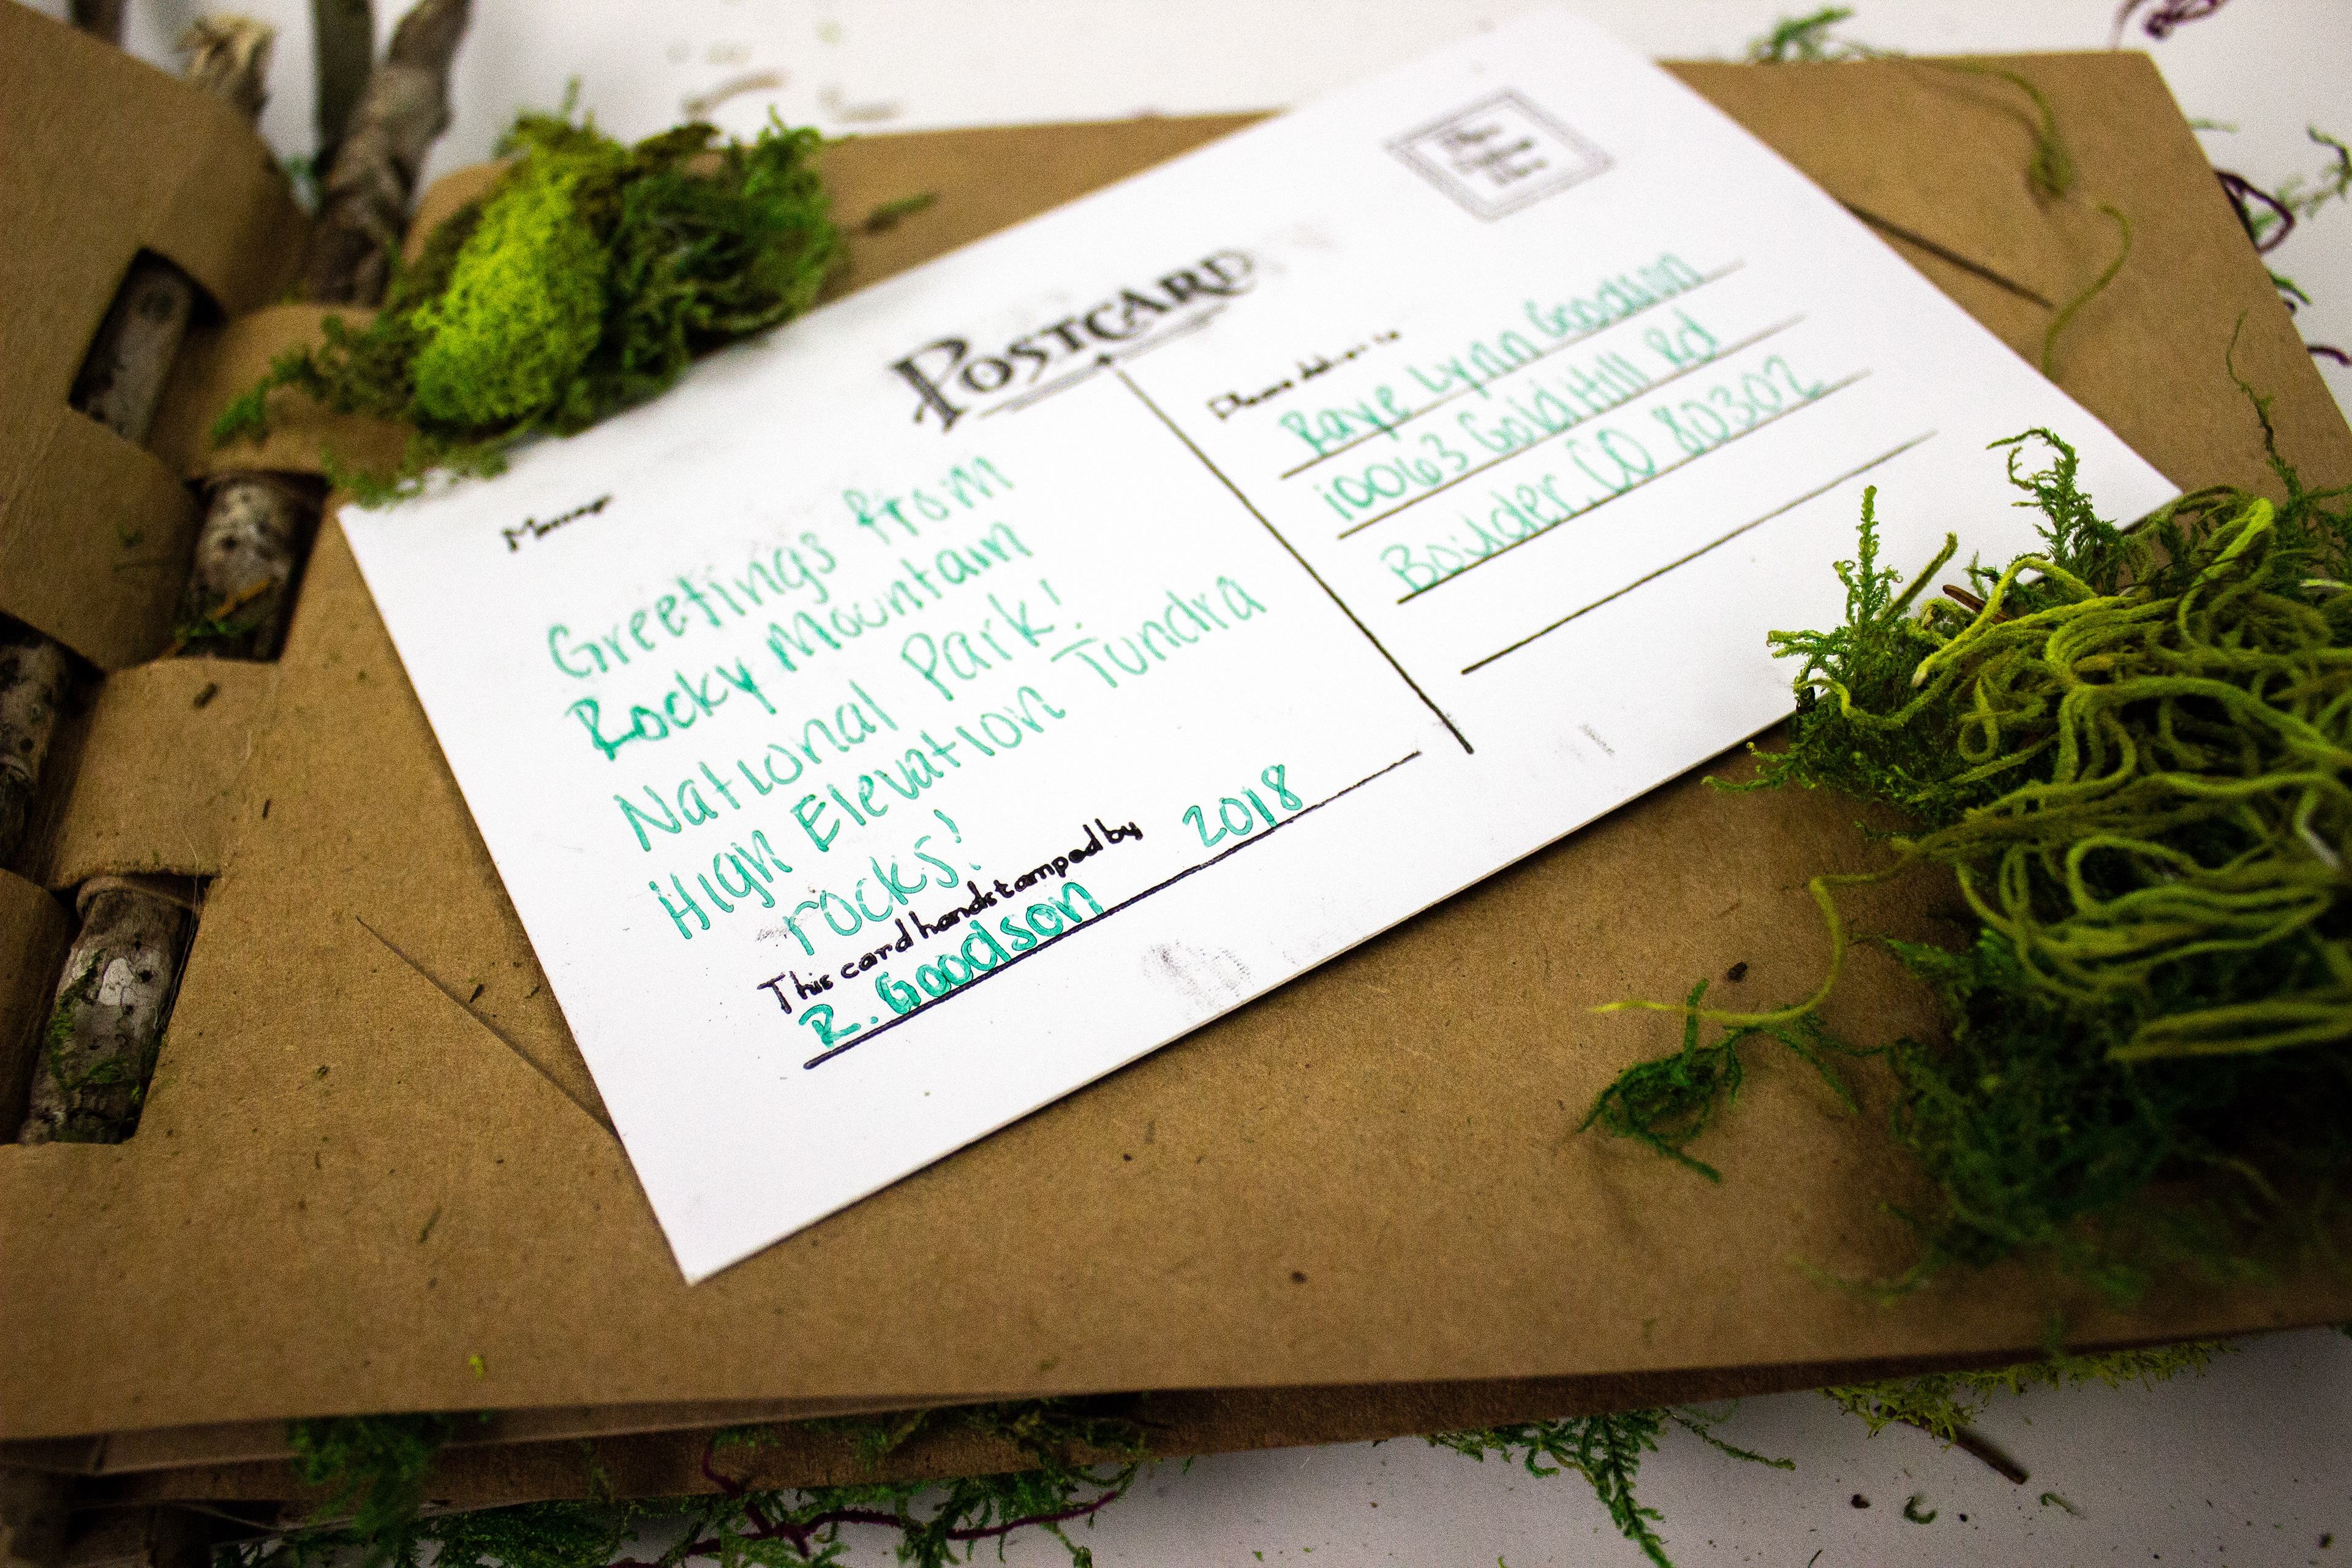 POSTCARD
Message
Greetings from
Rocky Mountain
National Park!
High Elevation Tundra
rocks!
This card handstamped by
R. Goodson 2018
Please deliver to
Raye Lynn Goodson
10063 Gold Hill Rd
Boulder, CO 80302